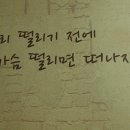 리 떨리기 전에
가슴 떨리면 떠나자